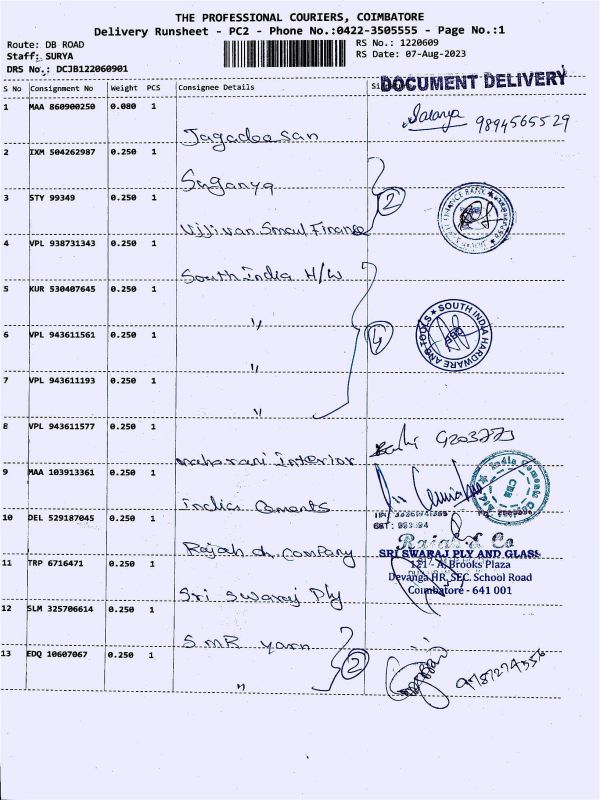 THE PROFESSIONAL COURIERS, COIMBATORE
Delivery Runsheet - PC2 - Phone No.:0422-3505555 - Page No.:1
Route: DB ROAD
Staff: SURYA
DRS No.: DCJB122060901
RS No.: 1220609
RS Date: 07-Aug-2023
S No Consignment No Weight PCS Consignee Details
DOCUMENT DELIVERY
1 MAA 860900250 0.080 1 Jagadeesan
Saranya 9894565529
2 IXM 504262987 0.250 1 Suganya
3 STY 99349 0.250 1 Ujjivan Small Finance
2
4 VPL 938731343 0.250 1 South India H/W
5 KUR 530407645 0.250 1 "
6 VPL 943611561 0.250 1 "
7 VPL 943611193 0.250 1 "
4
SOUTH INDIA HARDWARE AND TOOLS
8 VPL 943611577 0.250 1 maharani Interior
9 MAA 103913361 0.250 1 India Cements
India Cements
10 DEL 529187045 0.250 1 Rajah & Company
Rajah & Co
11 TRP 6716471 0.250 1 Sri Swaraj Ply
SRI SWARAJ PLY AND GLASS
121 - A, Brooks Plaza
Devanga HR. SEC. School Road
Coimbatore - 641 001
12 SLM 325706614 0.250 1 S.M.R yarn
13 EDQ 10607067 0.250 1 "
2
9787274556